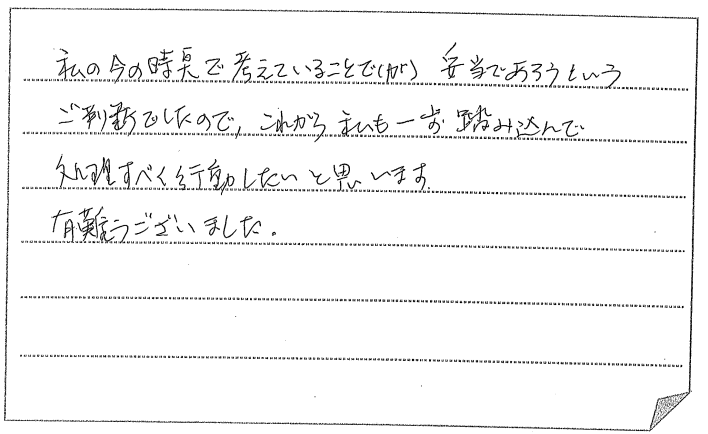 私の今の時点で考えていることで(が) 妥当であろうという
ご判断でしたので、これから私も一歩踏み込んで
処理すべく行動したいと思います.
有難うございました.